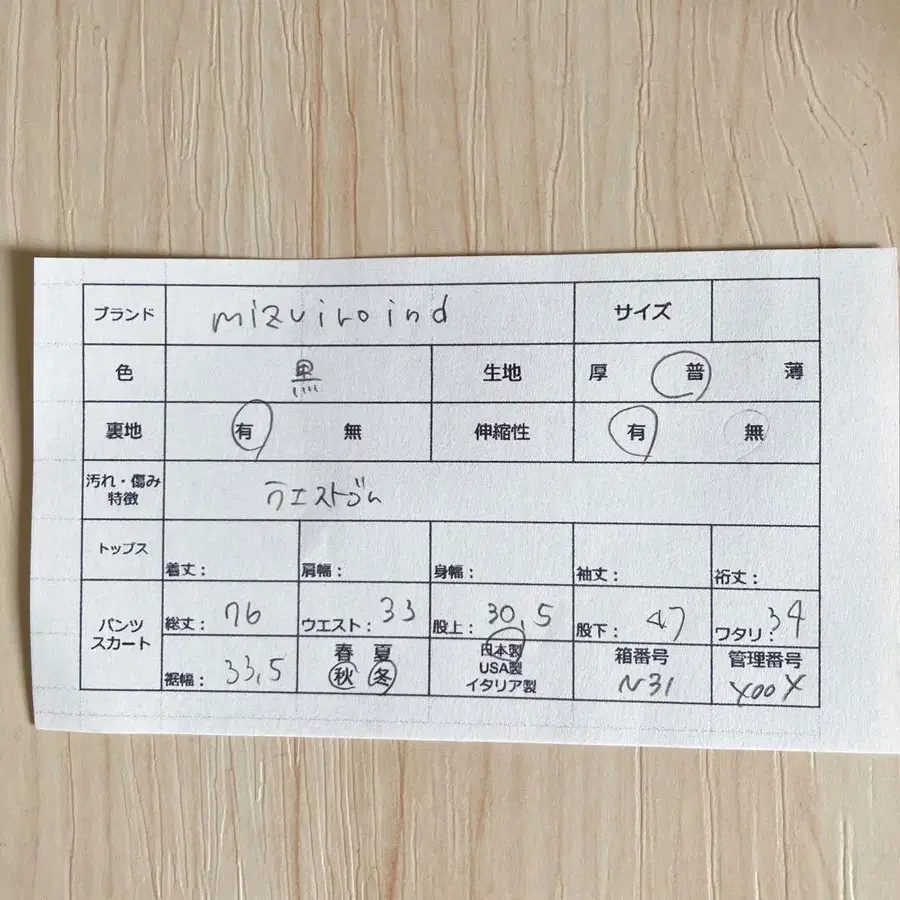 ブランド mizuiro ind サイズ
色 黒 生地 厚 普 薄
裏地 有 無 伸縮性 有 無
汚れ・傷み
特徴 ウエストゴム
トップス 着丈: 肩幅: 身幅: 袖丈: 裄丈:
パンツ
スカート
総丈: 76 ウエスト: 33 股上: 30,5 股下: 47 ワタリ: 34
裾幅: 33,5
春 夏
秋 冬
日本製
USA製
イタリア製
箱番号
N31
管理番号